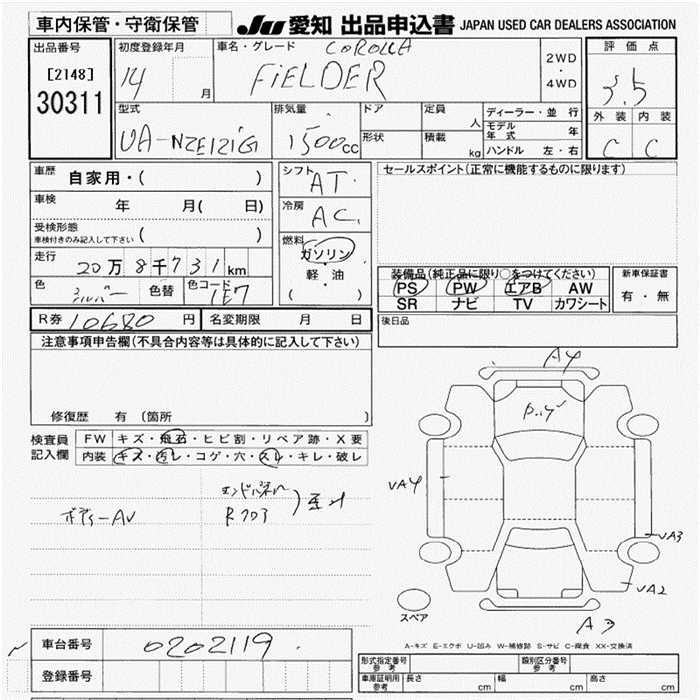 車内保管・守衛保管
JU 愛知 出品申込書 JAPAN USED CAR DEALERS ASSOCIATION
出品番号
[2148]
30311
初度登録年月
14 月
車名・グレード COROLLA
FiELDER
2WD
・
4WD
評価点
3.5
外装 内装
C C
型式
UA-NZE121G
排気量
1500cc
ドア
形状
定員
人
積載
kg
ディーラー・並行
モデル年式 年
ハンドル 左・右
車歴
自家用・( )
車検
年 月( 日)
受検形態
車検付きのみ記入して下さい ( )
走行
20万8千731km
色 シルバー 色替 色コード 1E7
シフト
AT
冷房
AC
燃料
ガソリン
・
軽・油
( )
セールスポイント(正常に機能するものに限ります)
装備品(純正品に限り○をつけてください)
PS PW エアB AW
SR ナビ TV カワシート
新車保証書
有・無
R券 10680 円 名変期限 月 日
後日品
注意事項申告欄(不具合内容等は具体的に記入して下さい)
修復歴 有 (箇所 )
検査員
記入欄
FW キズ・飛石・ヒビ割・リペア跡・X要
内装 キズ・汚レ・コゲ・穴・スレ・キレ・破レ
ボディーAU
A4
UA4
UA3
UA2
A3
スペア
A-キズ E-エクボ U-凹み W-補修跡 S-サビ C-腐食 XX-交換済
車台番号 0202119
登録番号
形式指定番号
参考
類別区分番号
参考
車庫証明用
参考
長さ cm 幅 cm 高さ cm